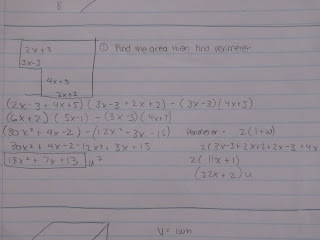 8
2x+3
① Find the area then find perimeter
3x-3
4x+5
2x+2
(2x-3+4x+5)(3x-3+2x+2)-(3x-3)(4x+5)
(6x+2)(5x-1)-(3x-3)(4x+5)
(30x²+4x-2)-(12x²-3x-15)
Perimeter = 2(l+w)
30x²+4x-2-12x²+3x+15
2(3x-3+2x+2+2x-3+4x
18x²+7x+13 u²
2(11x+1)
(22x+2)u
V= lwh